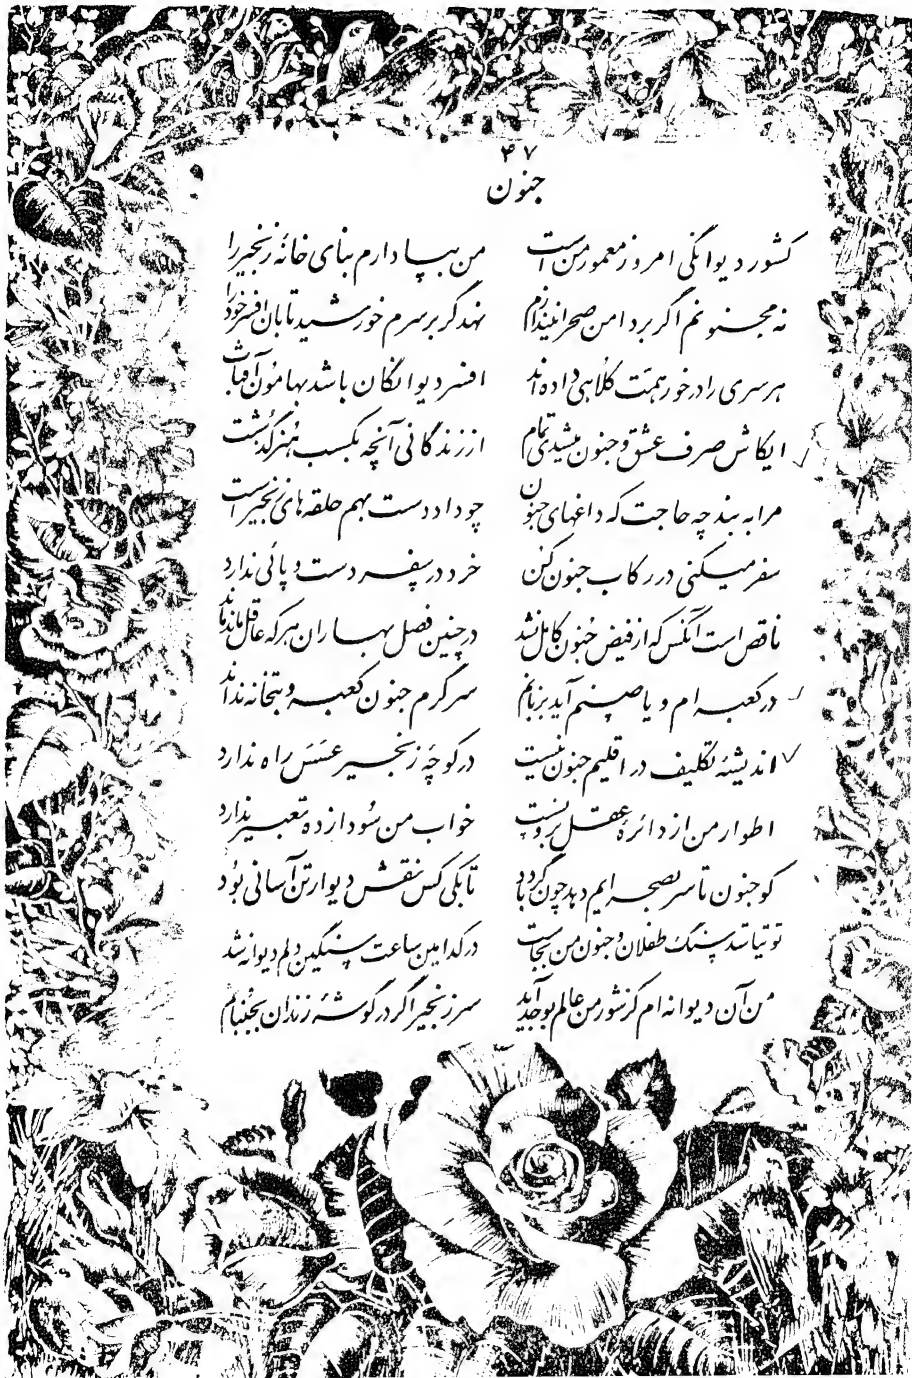 ۴۷
جنون
کشور دیوانگی امروز معمور من است من بپا دارم بنای خانهٔ زنجیر را
نه مجنونم اگر بر دامن صحرا نیندازم نهد گر بر سرم خورشید تابان افسر خود را
هر سری را در خور همت کلاهی داده‌اند افسر دیوانگان باشد بهامون آفتاب
ایکاش صرف عشق و جنون میشدی تمام از زندگانی آنچه بکسب هنر گذشت
مرا به بند چه حاجت که داغهای جنون چو داد دست بهم حلقه های زنجیر است
سفر میکنی در رکاب جنون کن خرد در سفر دست و پائی ندارد
ناقص است آنکس که از فیض جنون کامل نشد در چنین فصل بهاران هر که عاقل ماند ماند
در کعبه ام و یا صنم آید بزبانم سرگرم جنون کعبه و بتخانه نداند
اندیشهٔ تکلیف در اقلیم جنون نیست در کوچهٔ زنجیر عسس راه ندارد
اطوار من از دائرهٔ عقل برونست خواب من سودازده تعبیر ندارد
کو جنون تا سر بصحرایم دهد چون گردباد تا بکی کس نقش دیوار تن آسانی بود
توتیا شد سنگ طفلان و جنون من بجاست در کدامین ساعت سنگین دلم دیوانه شد
من آن دیوانه ام کز شور من عالم بوجد آید سر زنجیر اگر در گوشهٔ زندان بجنبانم